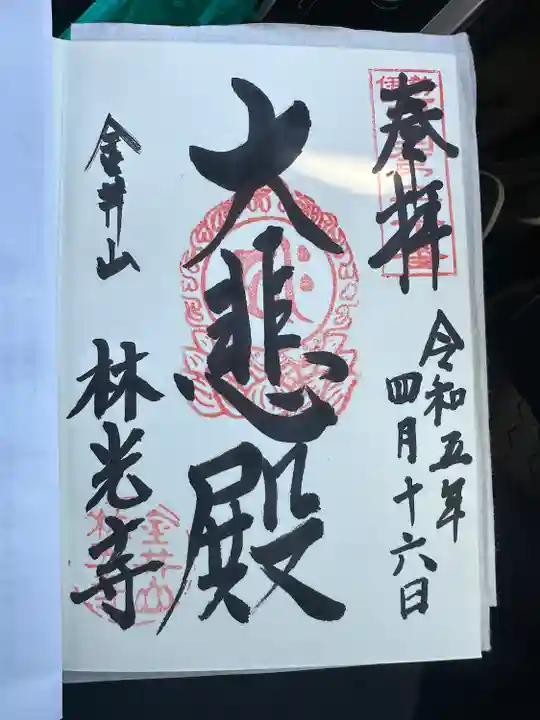 奉拝
令和五年
四月十六日
大悲殿
金井山
林光寺
金井山